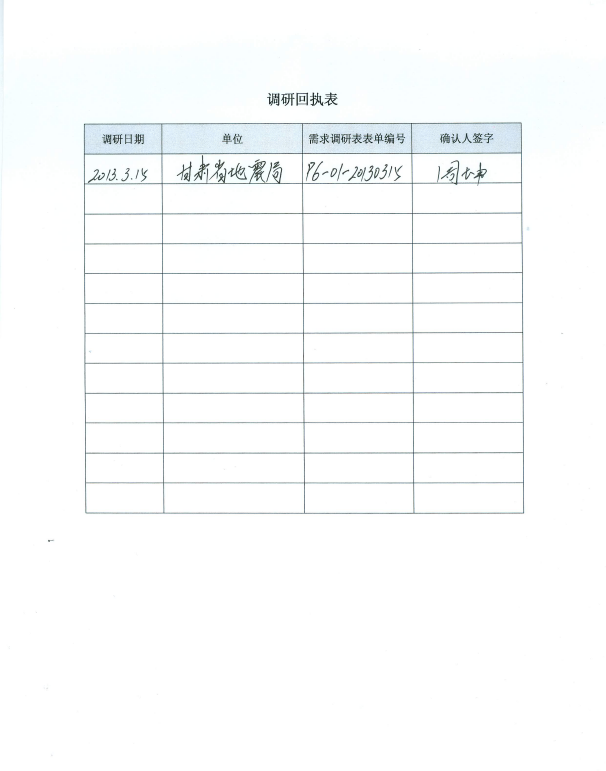 调研回执表
调研日期 单位 需求调研表表单编号 确认人签字
2013.3.15 甘肃省地震局 P6-01-20130315 周